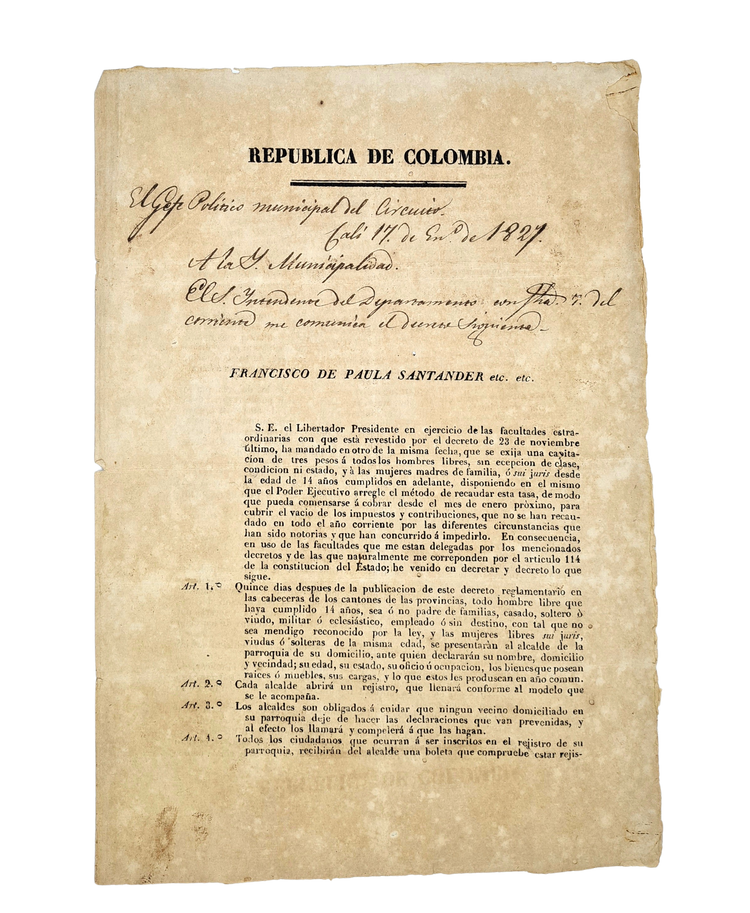 REPUBLICA DE COLOMBIA.
El Gefe Politico municipal del Circuito.
Cali 17. de En.º de 1827.
A la Y. Municipalidad.
El S. Intendente del Departamento con fha. 7. del
corriente me comunica el decreto siguiente—
FRANCISCO DE PAULA SANTANDER etc. etc.
S. E. el Libertador Presidente en ejercicio de las facultades estra-
ordinarias con que está revestido por el decreto de 23 de noviembre
último, ha mandado en otro de la misma fecha, que se exija una capita-
cion de tres pesos á todos los hombres libres, sin ecepcion de clase,
condicion ni estado, y á las mujeres madres de familia, ó sui juris desde
la edad de 14 años cumplidos en adelante, disponiendo en el mismo
que el Poder Ejecutivo arregle el método de recaudar esta tasa, de modo
que pueda comensarse á cobrar desde el mes de enero próximo, para
cubrir el vacio de los impuestos y contribuciones, que no se han recau-
dado en todo el año corriente por las diferentes circunstancias que
han sido notorias y que han concurrido á impedirlo. En consecuencia,
en uso de las facultades que me estan delegadas por los mencionados
decretos y de las que naturalmente me correponden por el articulo 114
de la constitucion del Estado; he venido en decretar y decreto lo que
sigue.
Art. 1.º Quince dias despues de la publicacion de este decreto reglamentario en
las cabeceras de los cantones de las provincias, todo hombre libre que
haya cumplido 14 años, sea ó no padre de familias, casado, soltero ó
viudo, militar ó eclesiástico, empleado ó sin destino, con tal que no
sea mendigo reconocido por la ley, y las mujeres libres sui juris,
viudas ó solteras de la misma edad, se presentarán al alcalde de la
parroquia de su domicilio, ante quien declararán su nombre, domicilio
y vecindad; su edad, su estado, su oficio ú ocupacion, los bienes que posean
raices ó muebles, sus cargas, y lo que estos les produscan en año comun.
Art. 2.º Cada alcalde abrirá un rejistro, que llenará conforme al modelo que
se le acompaña.
Art. 3.º Los alcaldes son obligados á cuidar que ningun vecino domiciliado en
su parroquia deje de hacer las declaraciones que van prevenidas, y
al efecto los llamará y compelerá á que las hagan.
Art. 4.º Todos los ciudadanos que ocurran á ser inscritos en el rejistro de su
parroquia, recibirán del alcalde una boleta que compruebe estar rejis-